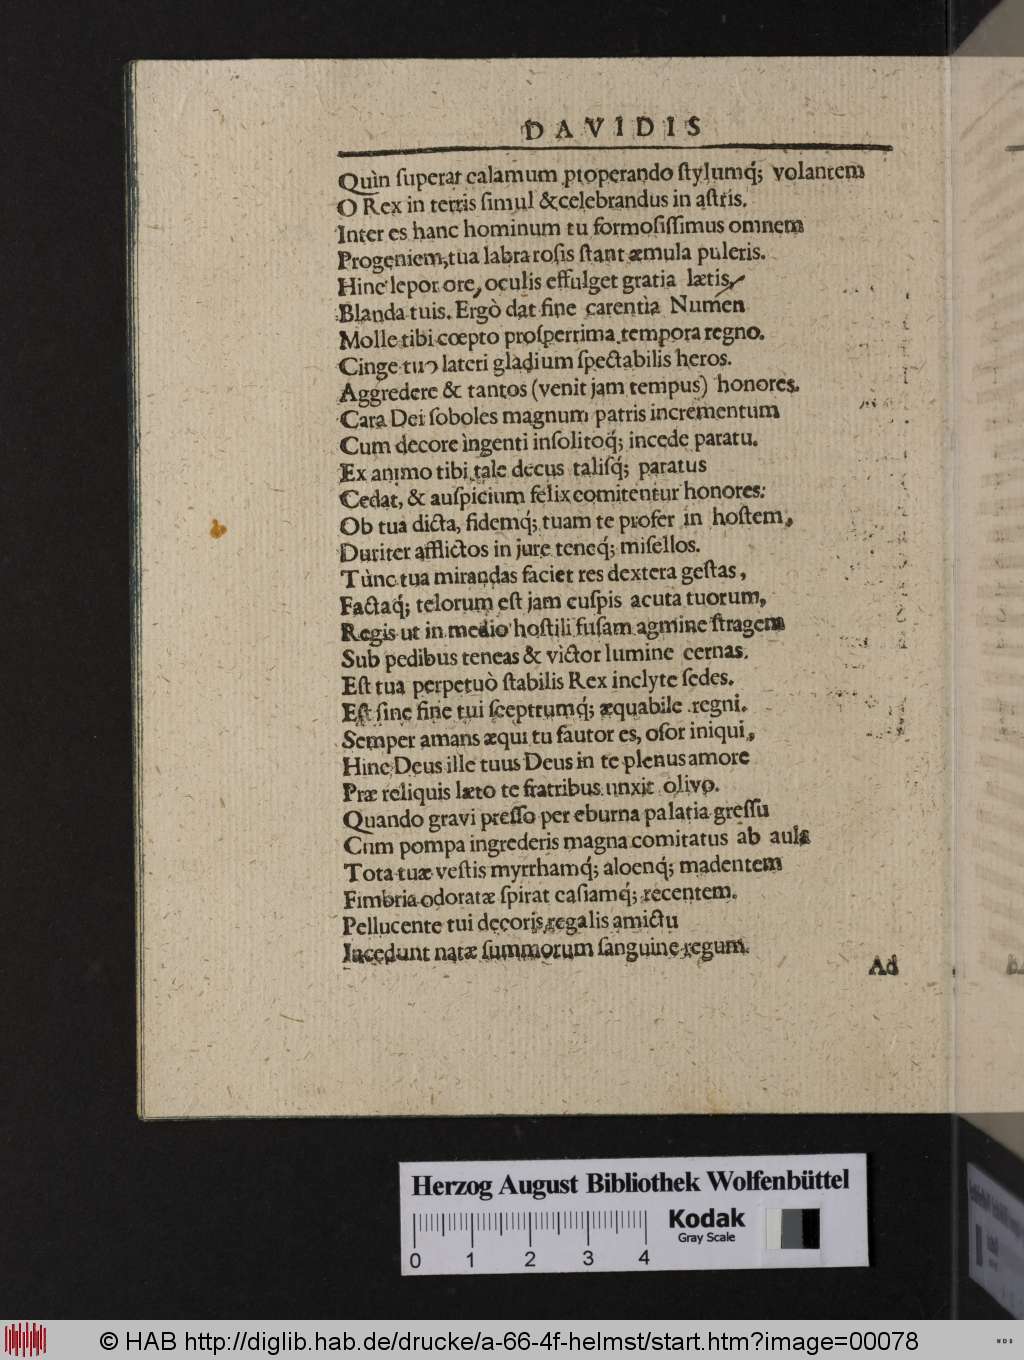 DAVIDIS
Quìn ſuperat calamum ptoperando ſtylumq́; volantem
O Rex in terris ſimul & celebrandus in aſtris.
Inter es hanc hominum tu formoſiſſimus omnem
Progeniem, tua labra roſis ſtant æmula puleris.
Hinc lepor ore, oculis effulget gratia lætis,
Blanda tuis. Ergò dat fine carentia Numen
Molle tibi cœpto proſperrima tempora regno.
Cinge tuo lateri gladium ſpectabilis heros.
Aggredere & tantos (venit jam tempus) honores.
Cara Dei ſoboles magnum patris incrementum
Cum decore ingenti inſolitoq́; incede paratu.
Ex animo tibi tale decus talisq́; paratus
Cedat, & auſpicium felix comitentur honores:
Ob tua dicta, fidemq́; tuam te profer in hoſtem,
Duriter afflictos in jure teneq́; miſellos.
Tùnc tua mirandas faciet res dextera geſtas,
Factaq́; telorum eſt jam cuſpis acuta tuorum,
Regis ut in medio hoſtili fuſam agmine ſtragem
Sub pedibus teneas & victor lumine cernas.
Eſt tua perpetuò ſtabilis Rex inclyte ſedes.
Eſt ſine fine tui ſceptrumq́; æquabile regni.
Semper amans æqui tu fautor es, oſor iniqui,
Hinc Deus ille tuus Deus in te plenus amore
Præ reliquis læto te fratribus unxit olivo.
Quando gravi preſſo per eburna palatia greſſu
Cum pompa ingrederis magna comitatus ab aula
Tota tuæ veſtis myrrhamq́; aloenq́; madentem
Fimbria odoratæ ſpirat caſiamq́; recentem.
Pellucente tui decoris regalis amictu
Incedunt natæ ſummorum ſanguine regum.
Ad
Herzog August Bibliothek Wolfenbüttel
Kodak
Gray Scale
0 1 2 3 4
© HAB http://diglib.hab.de/drucke/a-66-4f-helmst/start.htm?image=00078